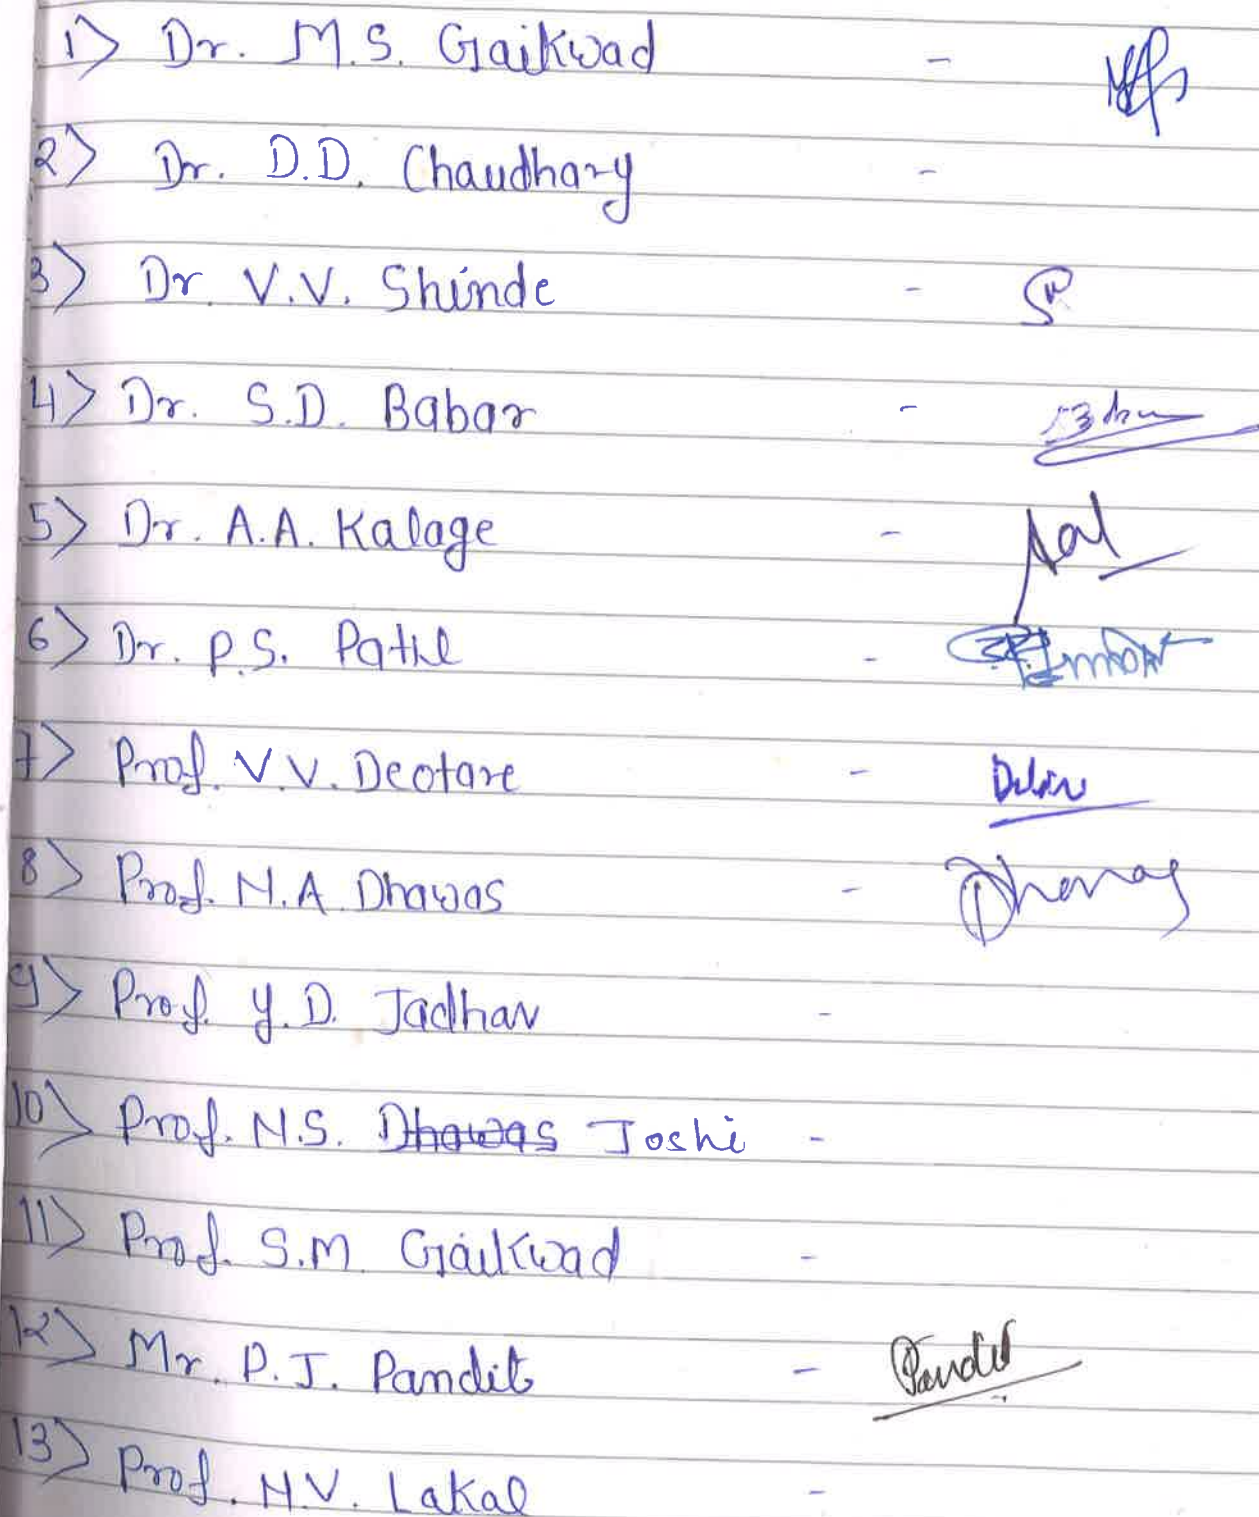 1) Dr. M.S. Gaikwad -
2) Dr. D.D. Chaudhary -
3) Dr. V.V. Shinde -
4) Dr. S.D. Babar -
5) Dr. A.A. Kalage -
6) Dr. P.S. Patil -
7) Prof. V.V. Deotare -
8) Prof. N.A. Dhawas - Dhawas
9) Prof. Y.D. Jadhav -
10) Prof. N.S. Dhawas Joshi -
11) Prof. S.M. Gaikwad -
12) Mr. P.J. Pandit - Pandit
13) Prof. N.V. Lakal -